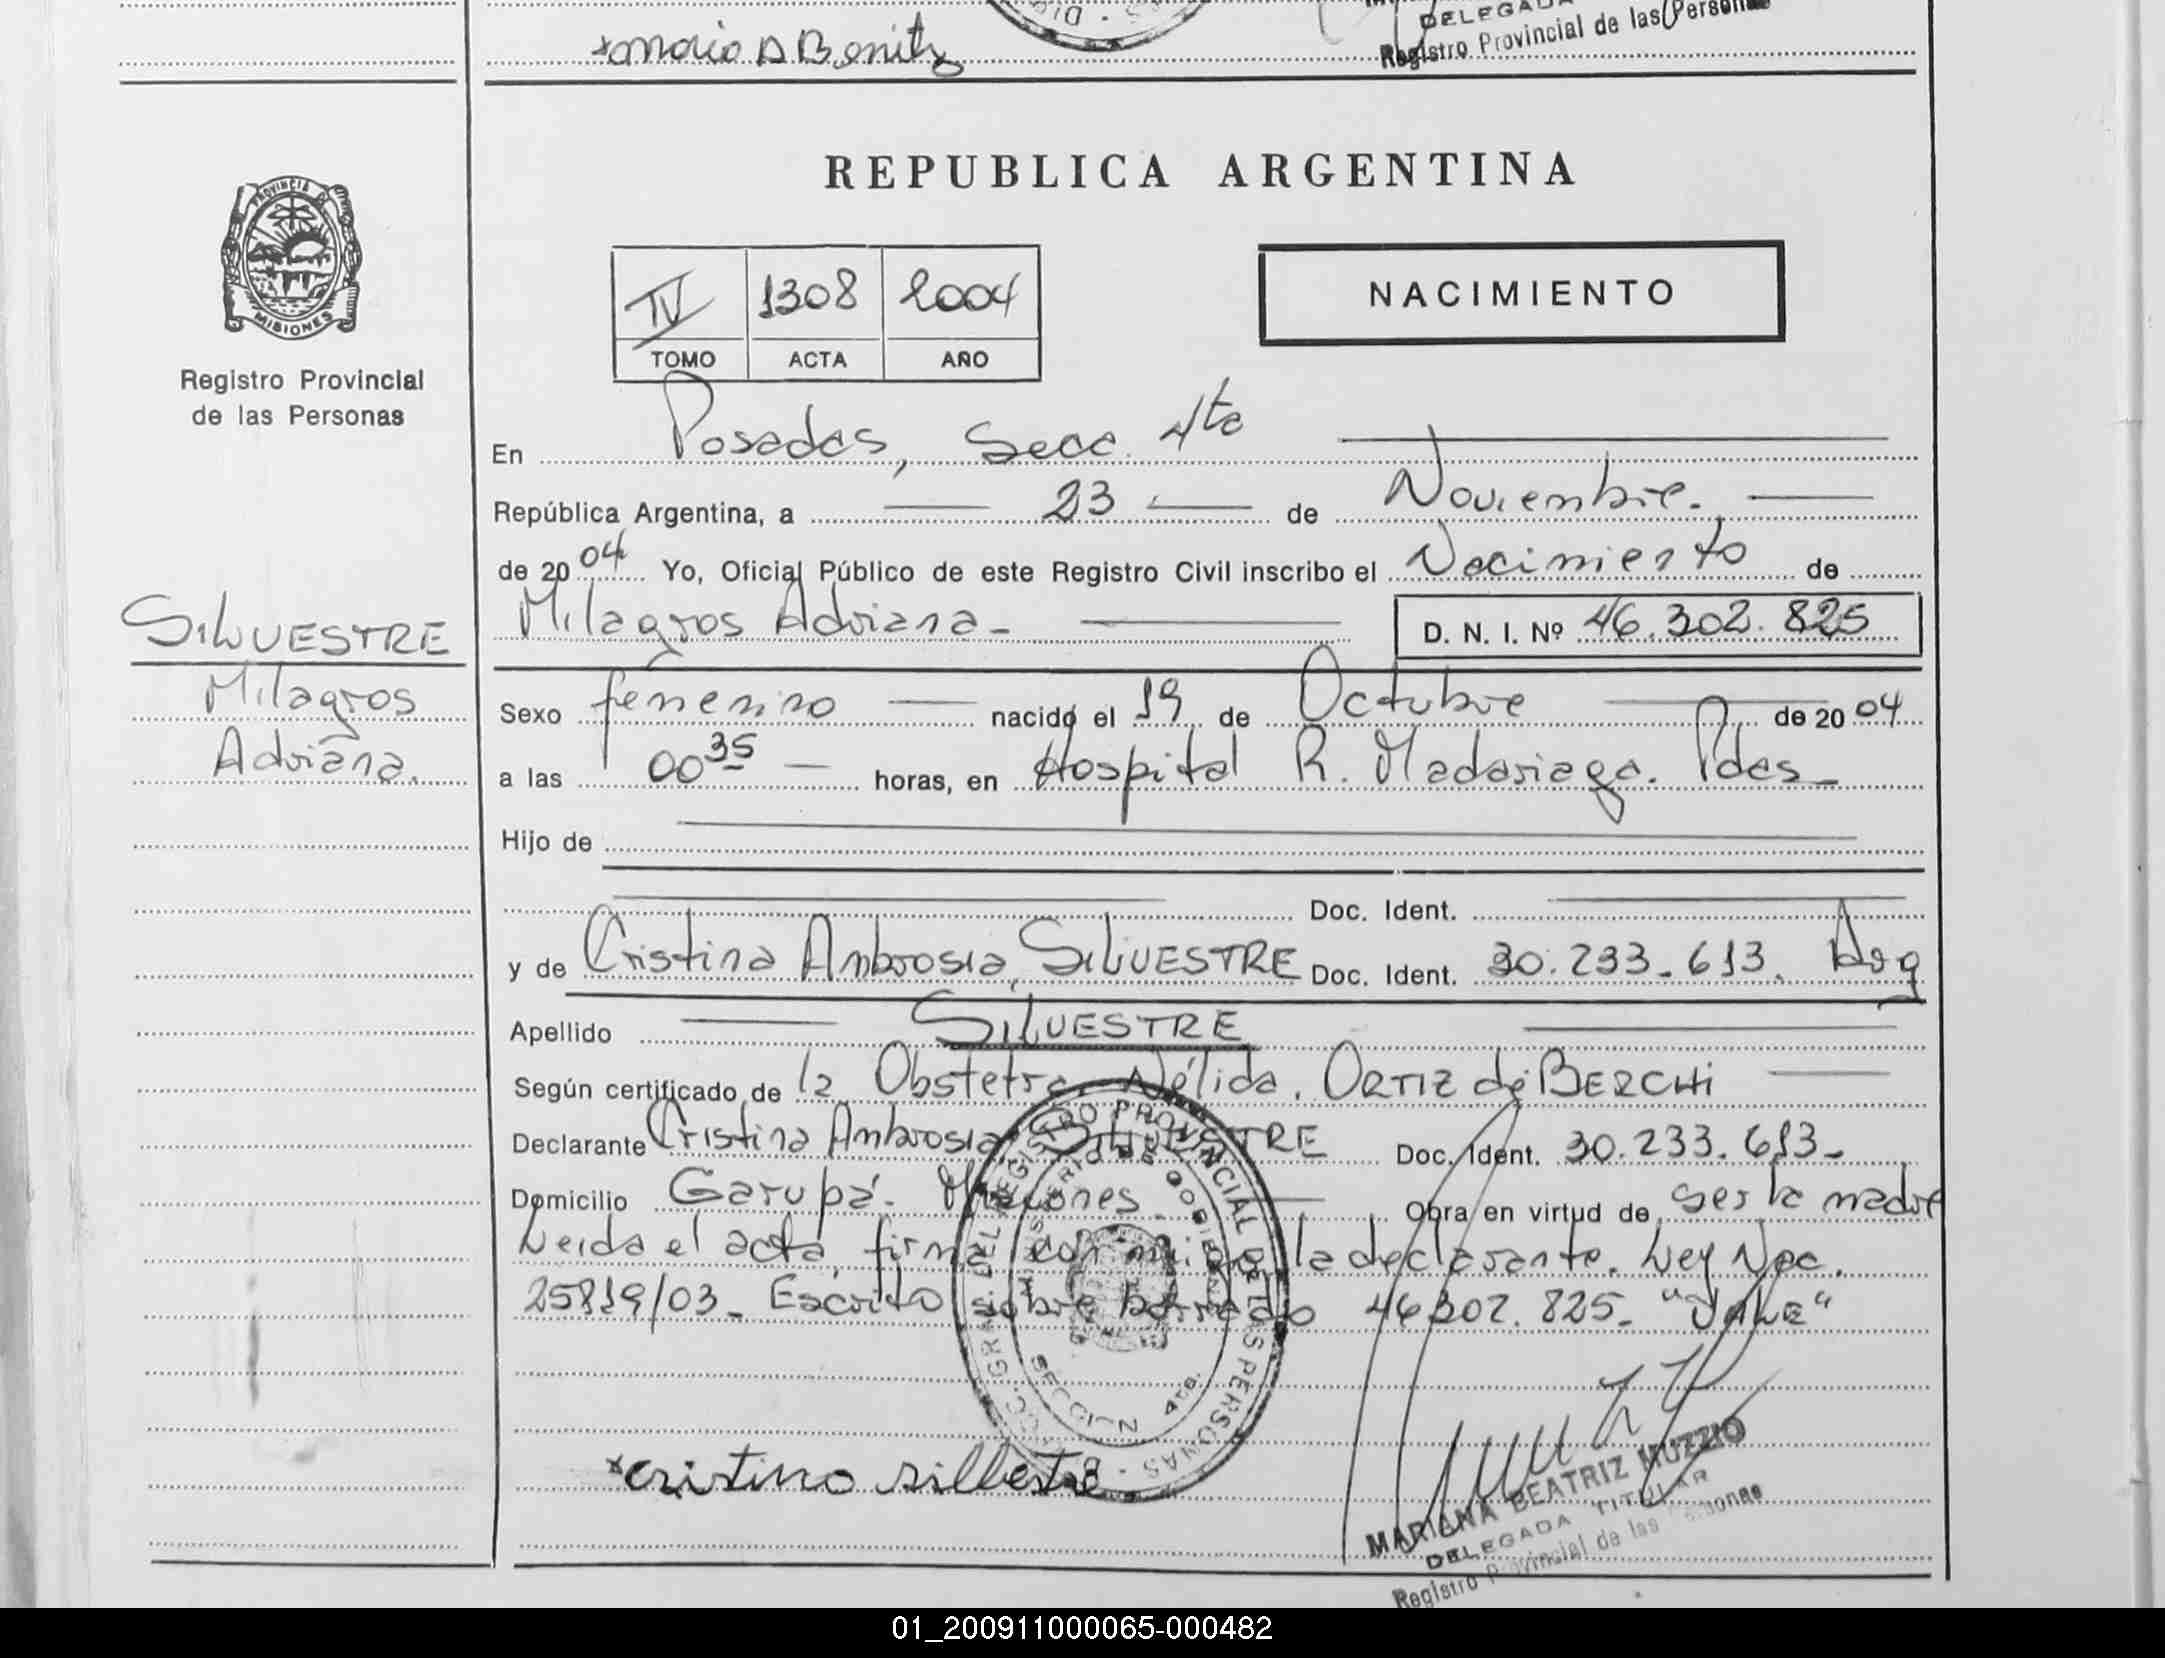 Mario A Benitz
DELEGADA
Registro Provincial de las Personas
PROVINCIA DE
MISIONES
Registro Provincial
de las Personas
REPUBLICA ARGENTINA
IV 1308 2004
TOMO ACTA AÑO
NACIMIENTO
En Posadas, Secc. 4ta
República Argentina, a 23 de Noviembre.
de 2004 Yo, Oficial Público de este Registro Civil inscribo el Nacimiento de
Milagros Adriana - D. N. I. Nº 46.302.825
SILVESTRE
Milagros
Adriana.
Sexo femenino nacido el 19 de Octubre de 2004
a las 00 35 horas, en Hospital R. Madariaga. Pdas -
Hijo de
Doc. Ident.
y de Cristina Ambrosia, SILVESTRE Doc. Ident. 30.233.613. Arg
Apellido SILVESTRE
Según certificado de la Obstetra, Nélida, ORTIZ de BERCHI
Declarante Cristina Ambrosia SILVESTRE Doc. Ident. 30.233.613-
Domicilio Garupá. Misiones. Obra en virtud de ser la madre
Leida el acta, firma conmigo la declarante. Ley Nac.
25819/03- Escrito sobre borrado 46302.825- "VALE"
REGISTRO PROVINCIAL DE LAS PERSONAS
SECCION 4ta.
x cristina silbestre
MARIANA BEATRIZ MUZZIO
DELEGADA TITULAR
Registro Provincial de las Personas
01_200911000065-000482